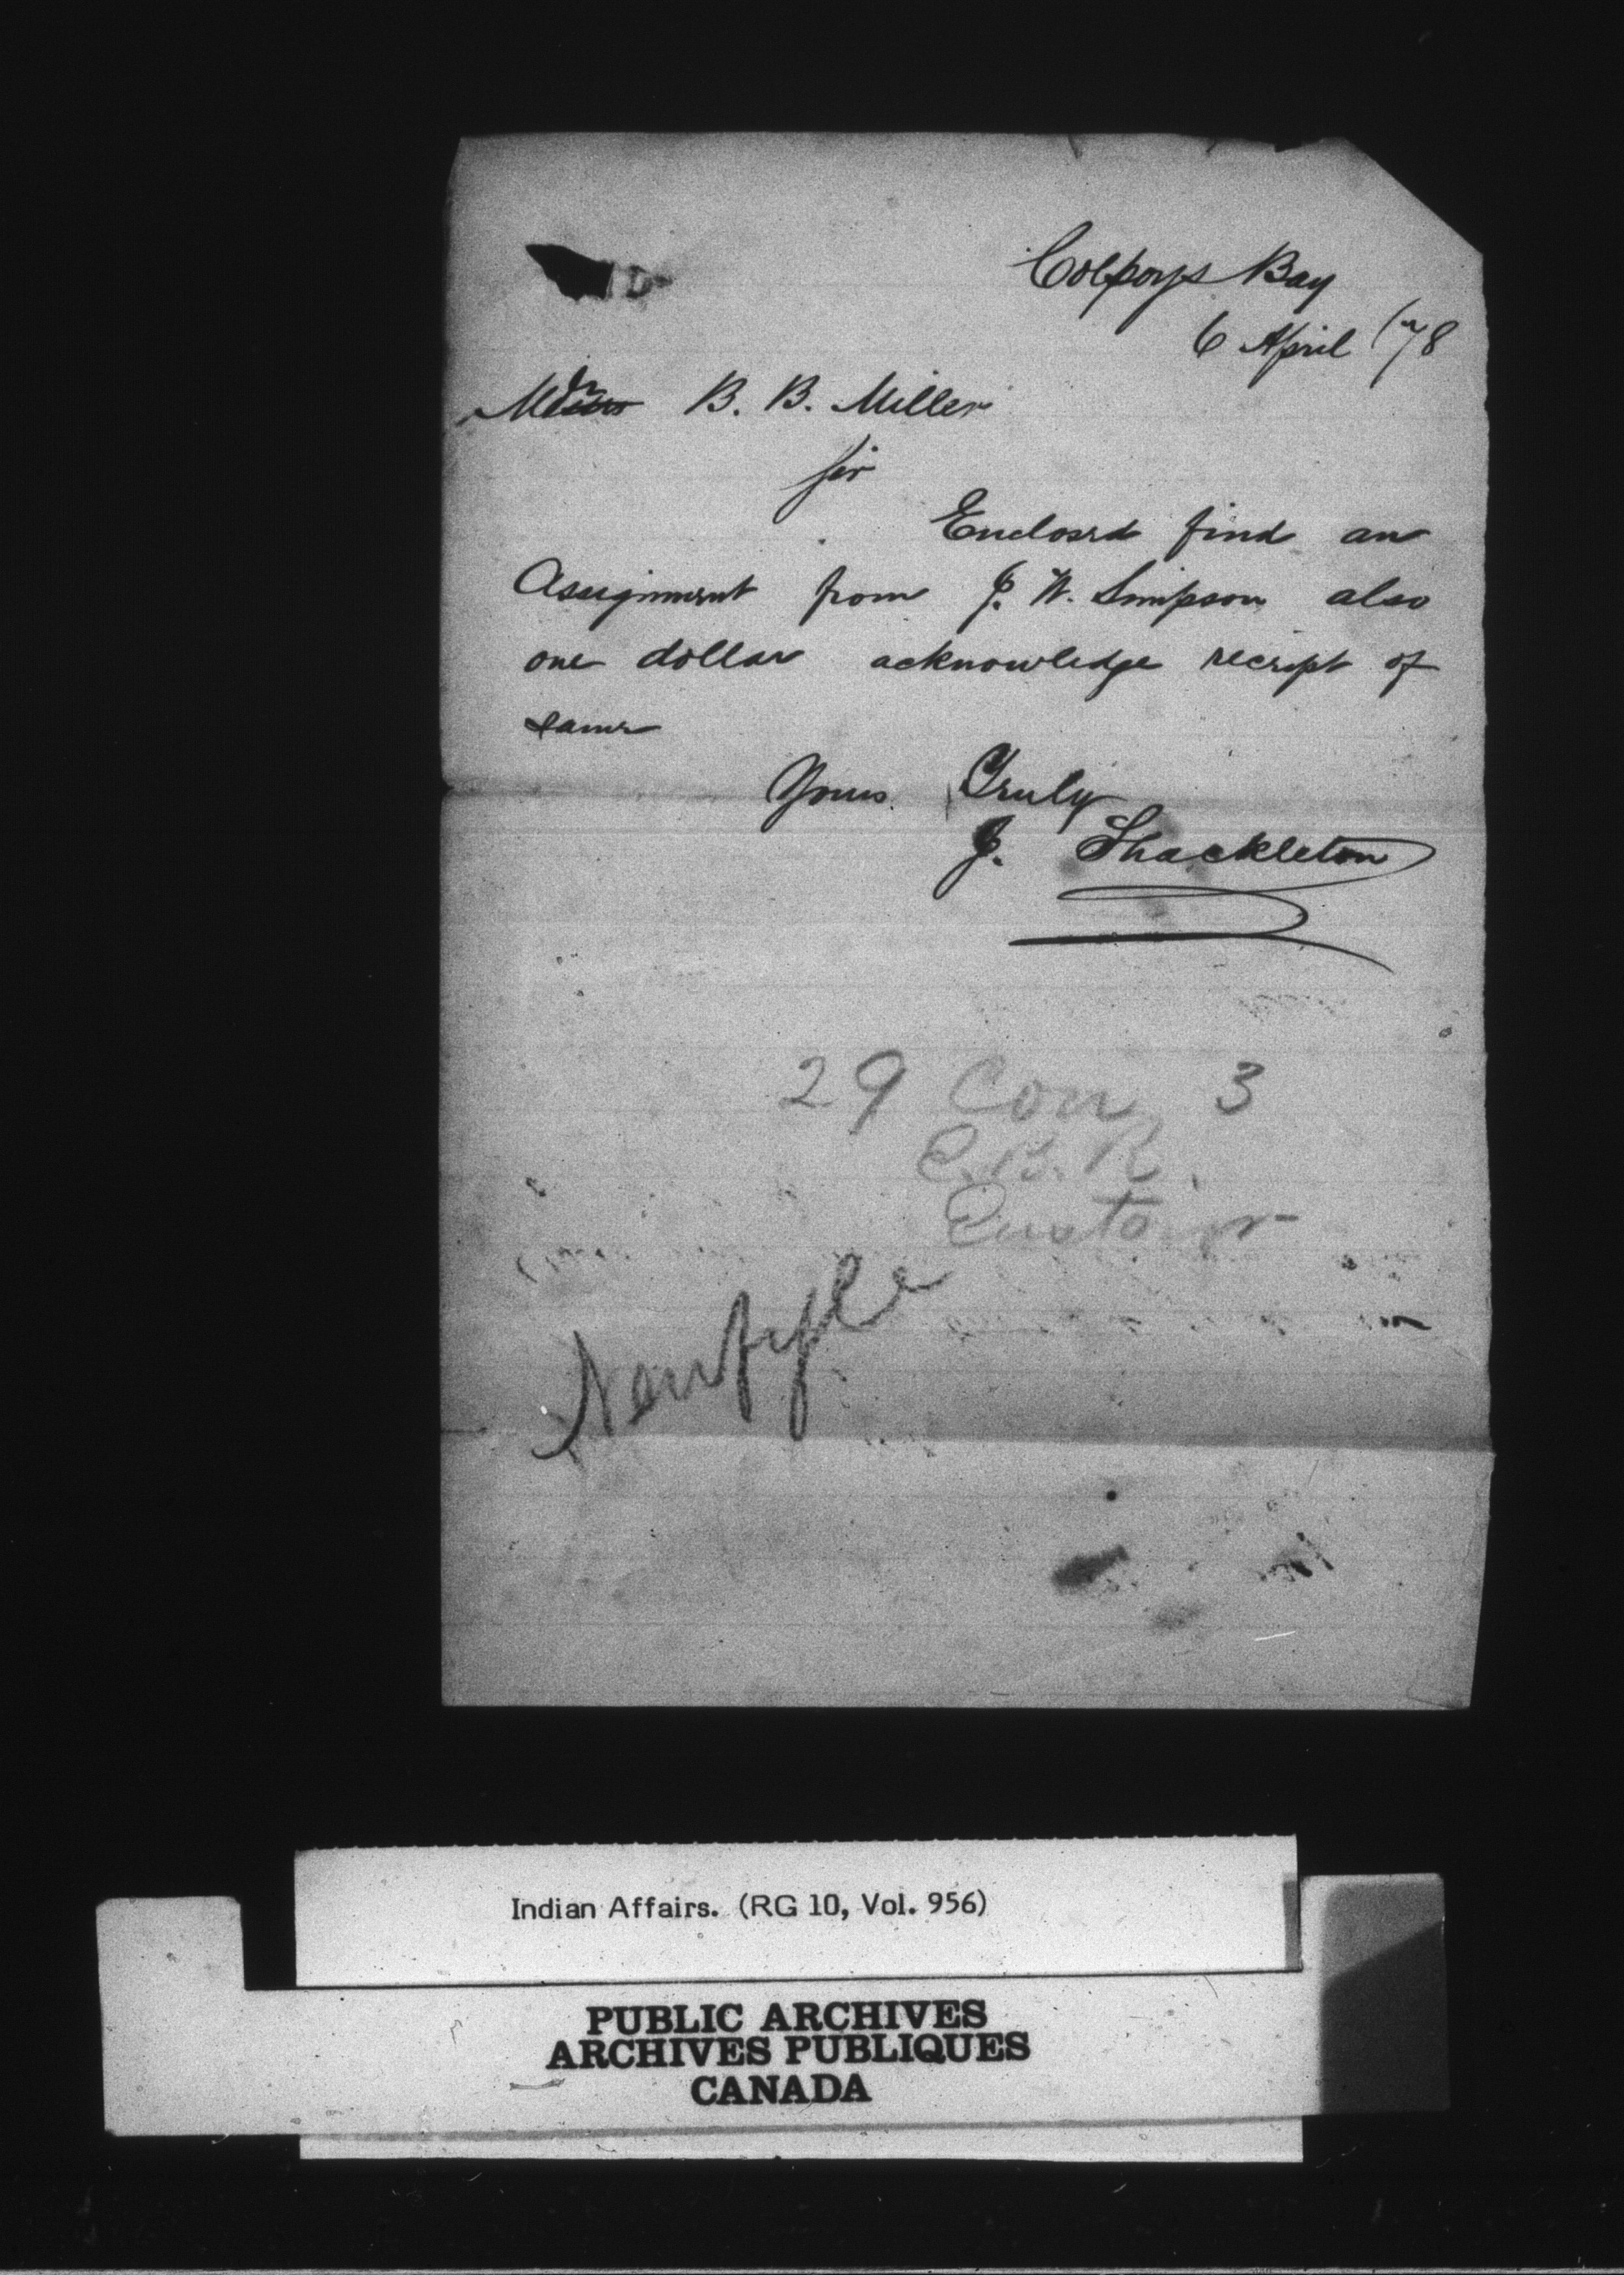 Colpoys Bay
6 April /78
Mr B. B. Miller
Sir
Enclosed find an
Assignment from J. W. Simpson also
one dollar acknowledge receipt of
same
Yours Truly
J. Shackleton
29 Con 3
C.B.R.
Indian Affairs. (RG 10, Vol. 956)
PUBLIC ARCHIVES
ARCHIVES PUBLIQUES
CANADA